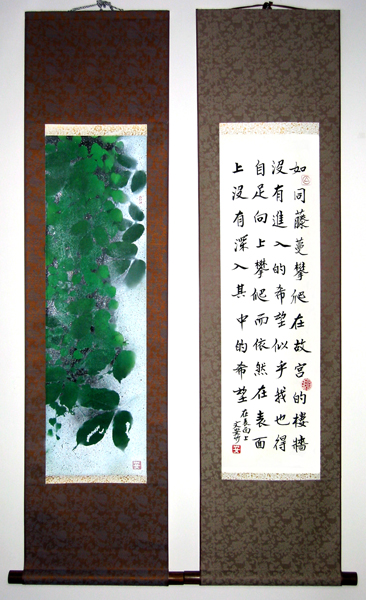 如同藤蔓攀爬在故宮的樓牆
沒有進入的希望似乎我也得
自足向上攀爬而依然在表面
上沒有深入其中的希望
在表面上